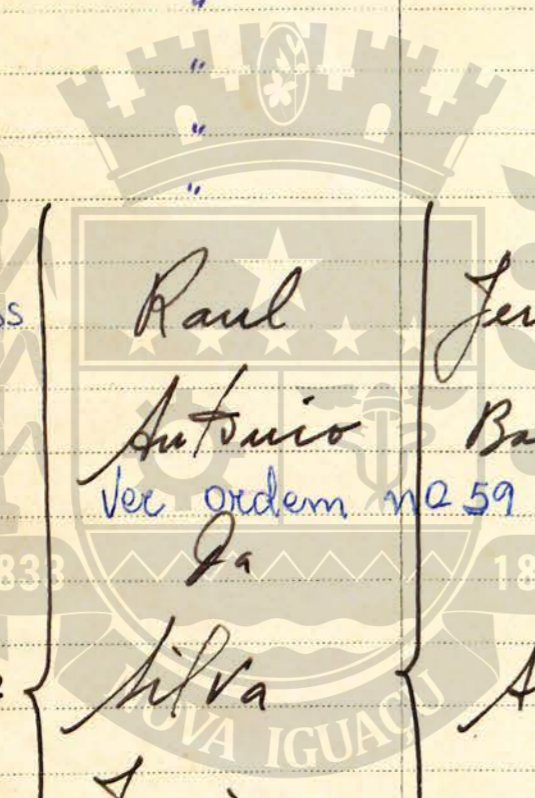 "
"
"
"
Raul
Antonio
Ver ordem nº 59
Da
Silva
1833
NOVA IGUAÇU